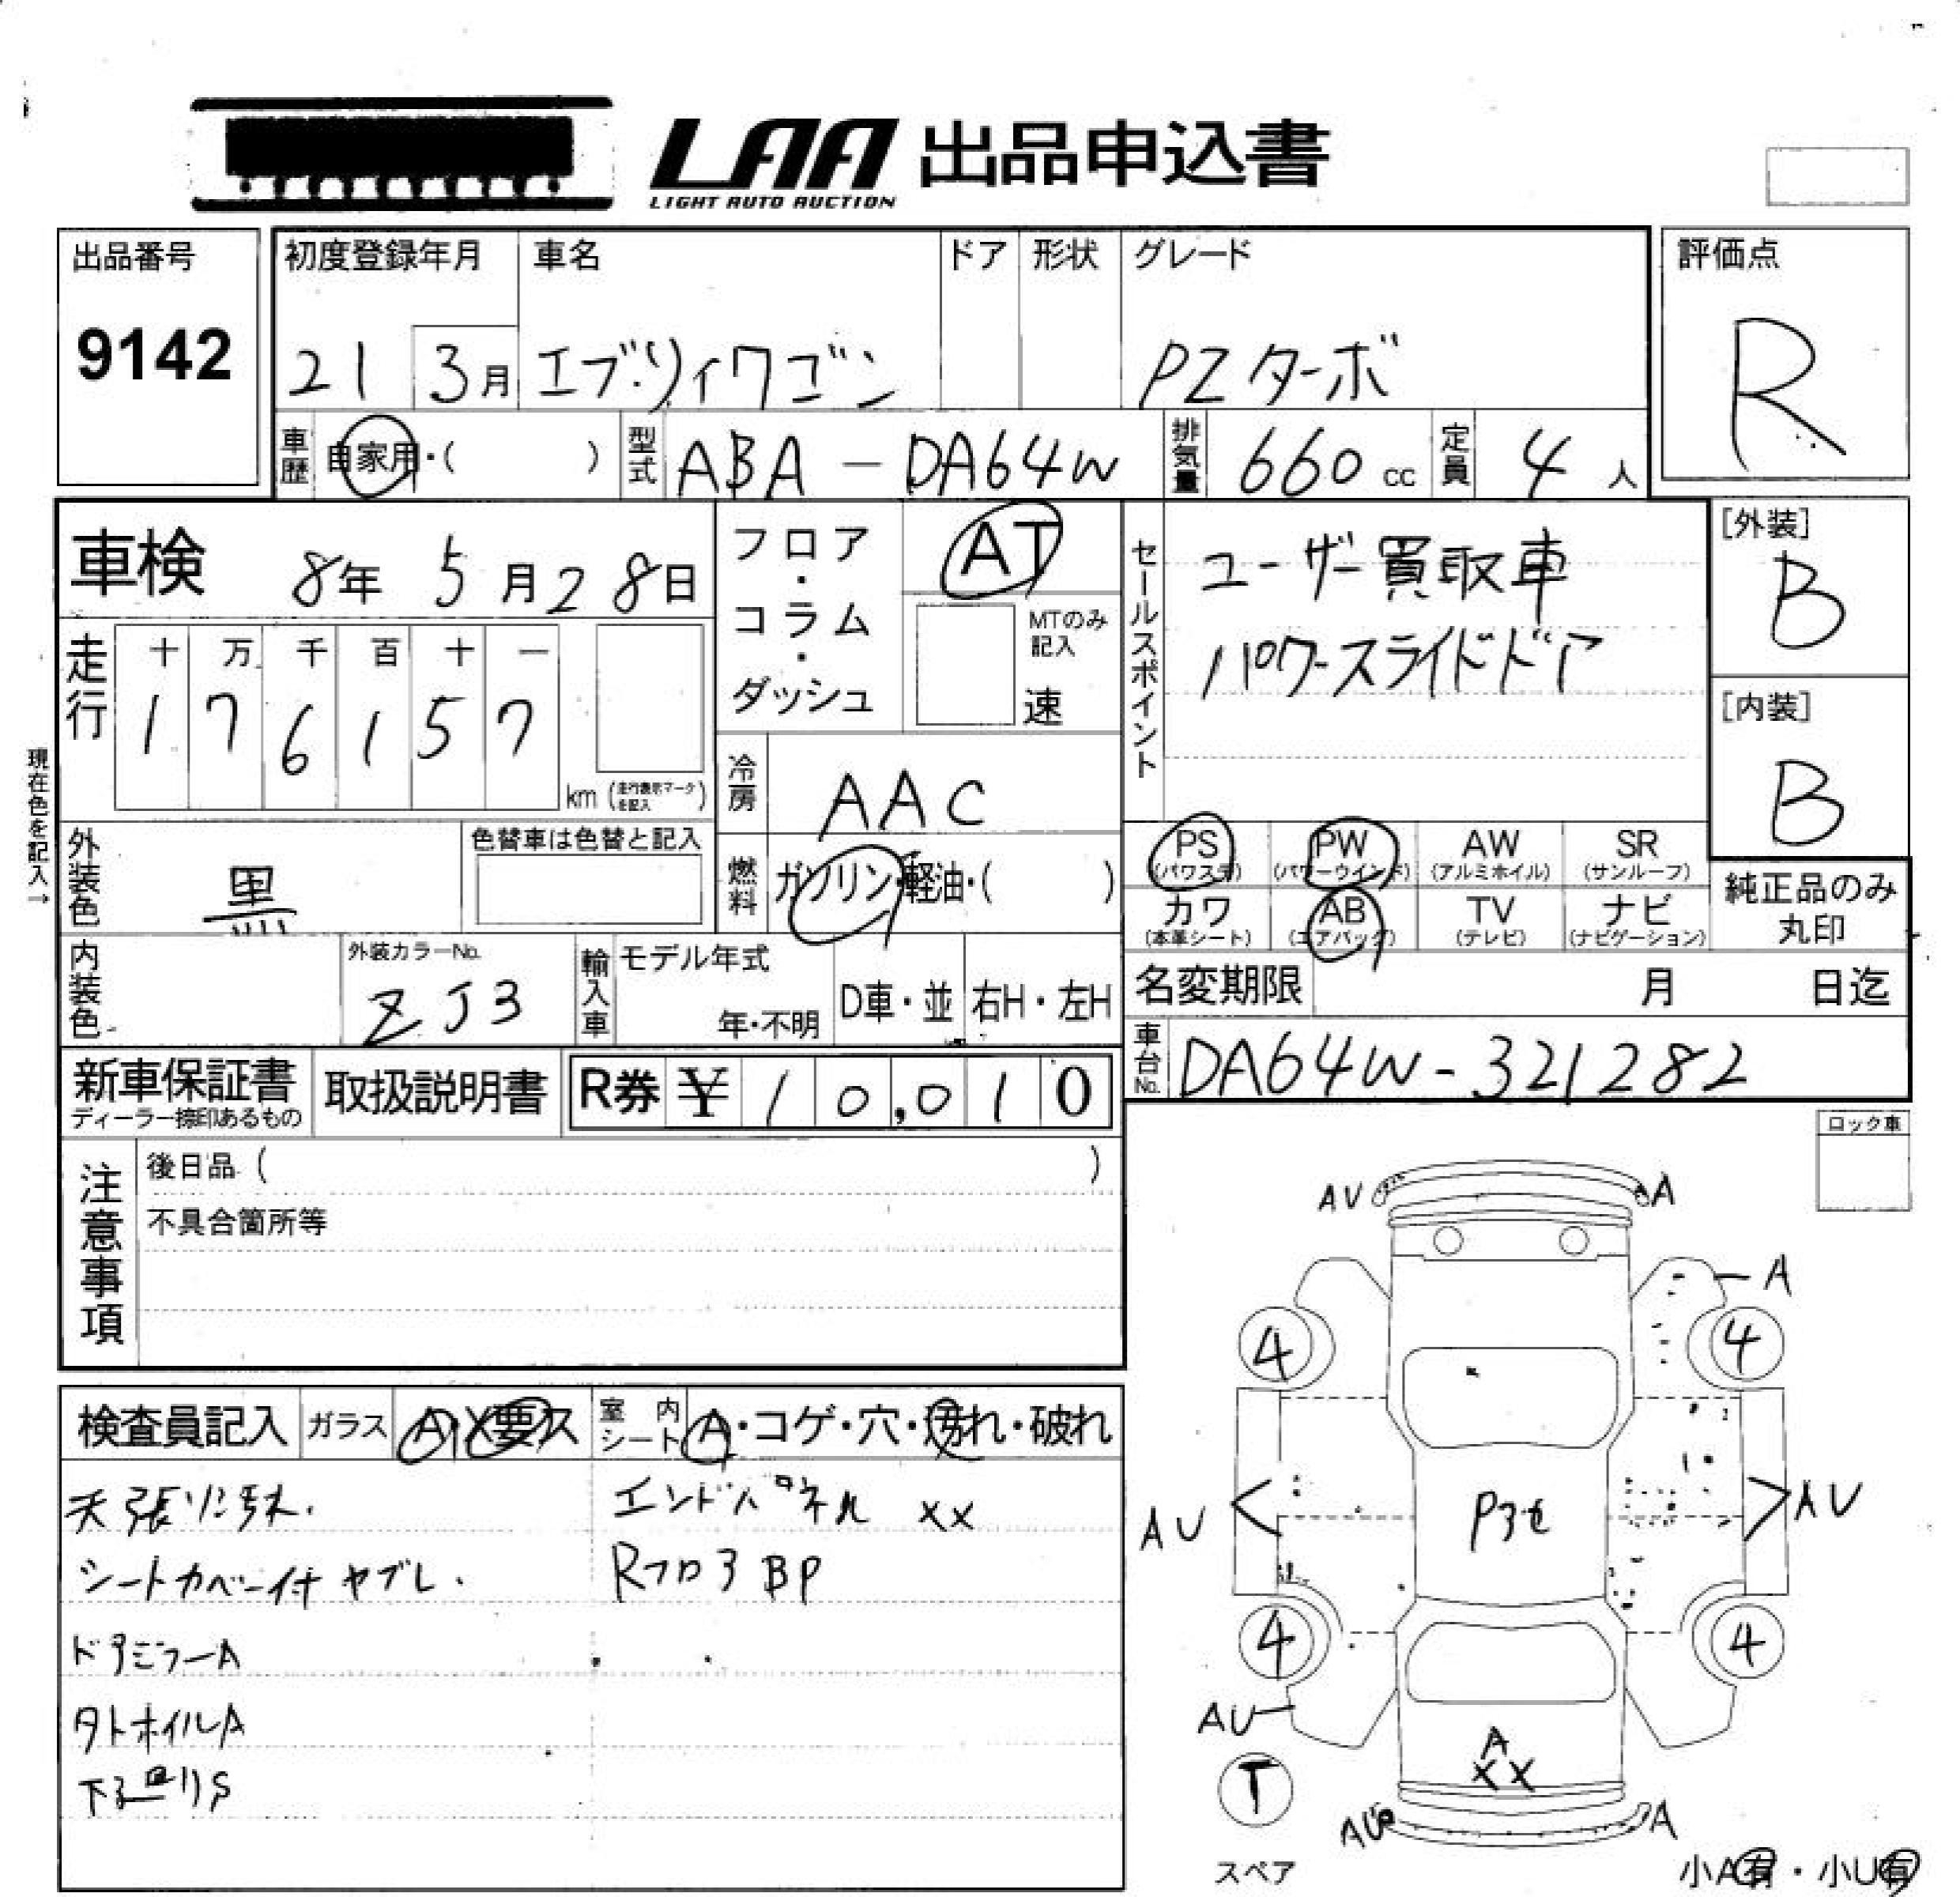 LAA 出品申込書
LIGHT AUTO AUCTION
出品番号
9142
初度登録年月 車名 ドア 形状 グレード
21 3月 エブリィワゴン PZターボ
評価点
R
車歴 自家用・( ) 型式 ABA-DA64W 排気量 660cc 定員 4人
車検 8年5月28日
走行 十 万 千 百 十 一
1 7 6 1 5 7
km (走行表示マークを記入)
現在色を記入→
外装色 黒
色替車は色替と記入
内装色
外装カラーNo.
ZJ3
フロア・コラム・ダッシュ
AT
MTのみ記入
速
冷房 AAC
燃料 ガソリン・軽油・( )
輸入車 モデル年式
年・不明 D車・並 右H・左H
セールスポイント
ユーザー買取車
パワースライドドア
[外装]
B
[内装]
B
PS PW AW SR
(パワステ) (パワーウインド) (アルミホイル) (サンルーフ)
カワ AB TV ナビ
(本革シート) (エアバッグ) (テレビ) (ナビゲーション)
純正品のみ
丸印
名変期限 月 日迄
車台No. DA64W-321282
新車保証書
ディーラー捺印あるもの
取扱説明書
R券 ¥10,010
注意事項
後日品 ( )
不具合箇所等
ロック車
検査員記入 ガラス A・X要ス 室内シート A・コゲ・穴・汚れ・破れ
天張り汚れ. エンドパネル XX
シートカバー付 ヤブレ. Rフロア BP
ドアミラーA
タトホイルA
下廻りS
AV A
A
4 4
AU AU
4 4
AU
A
XX
T
AU A
スペア
小A有・小U有